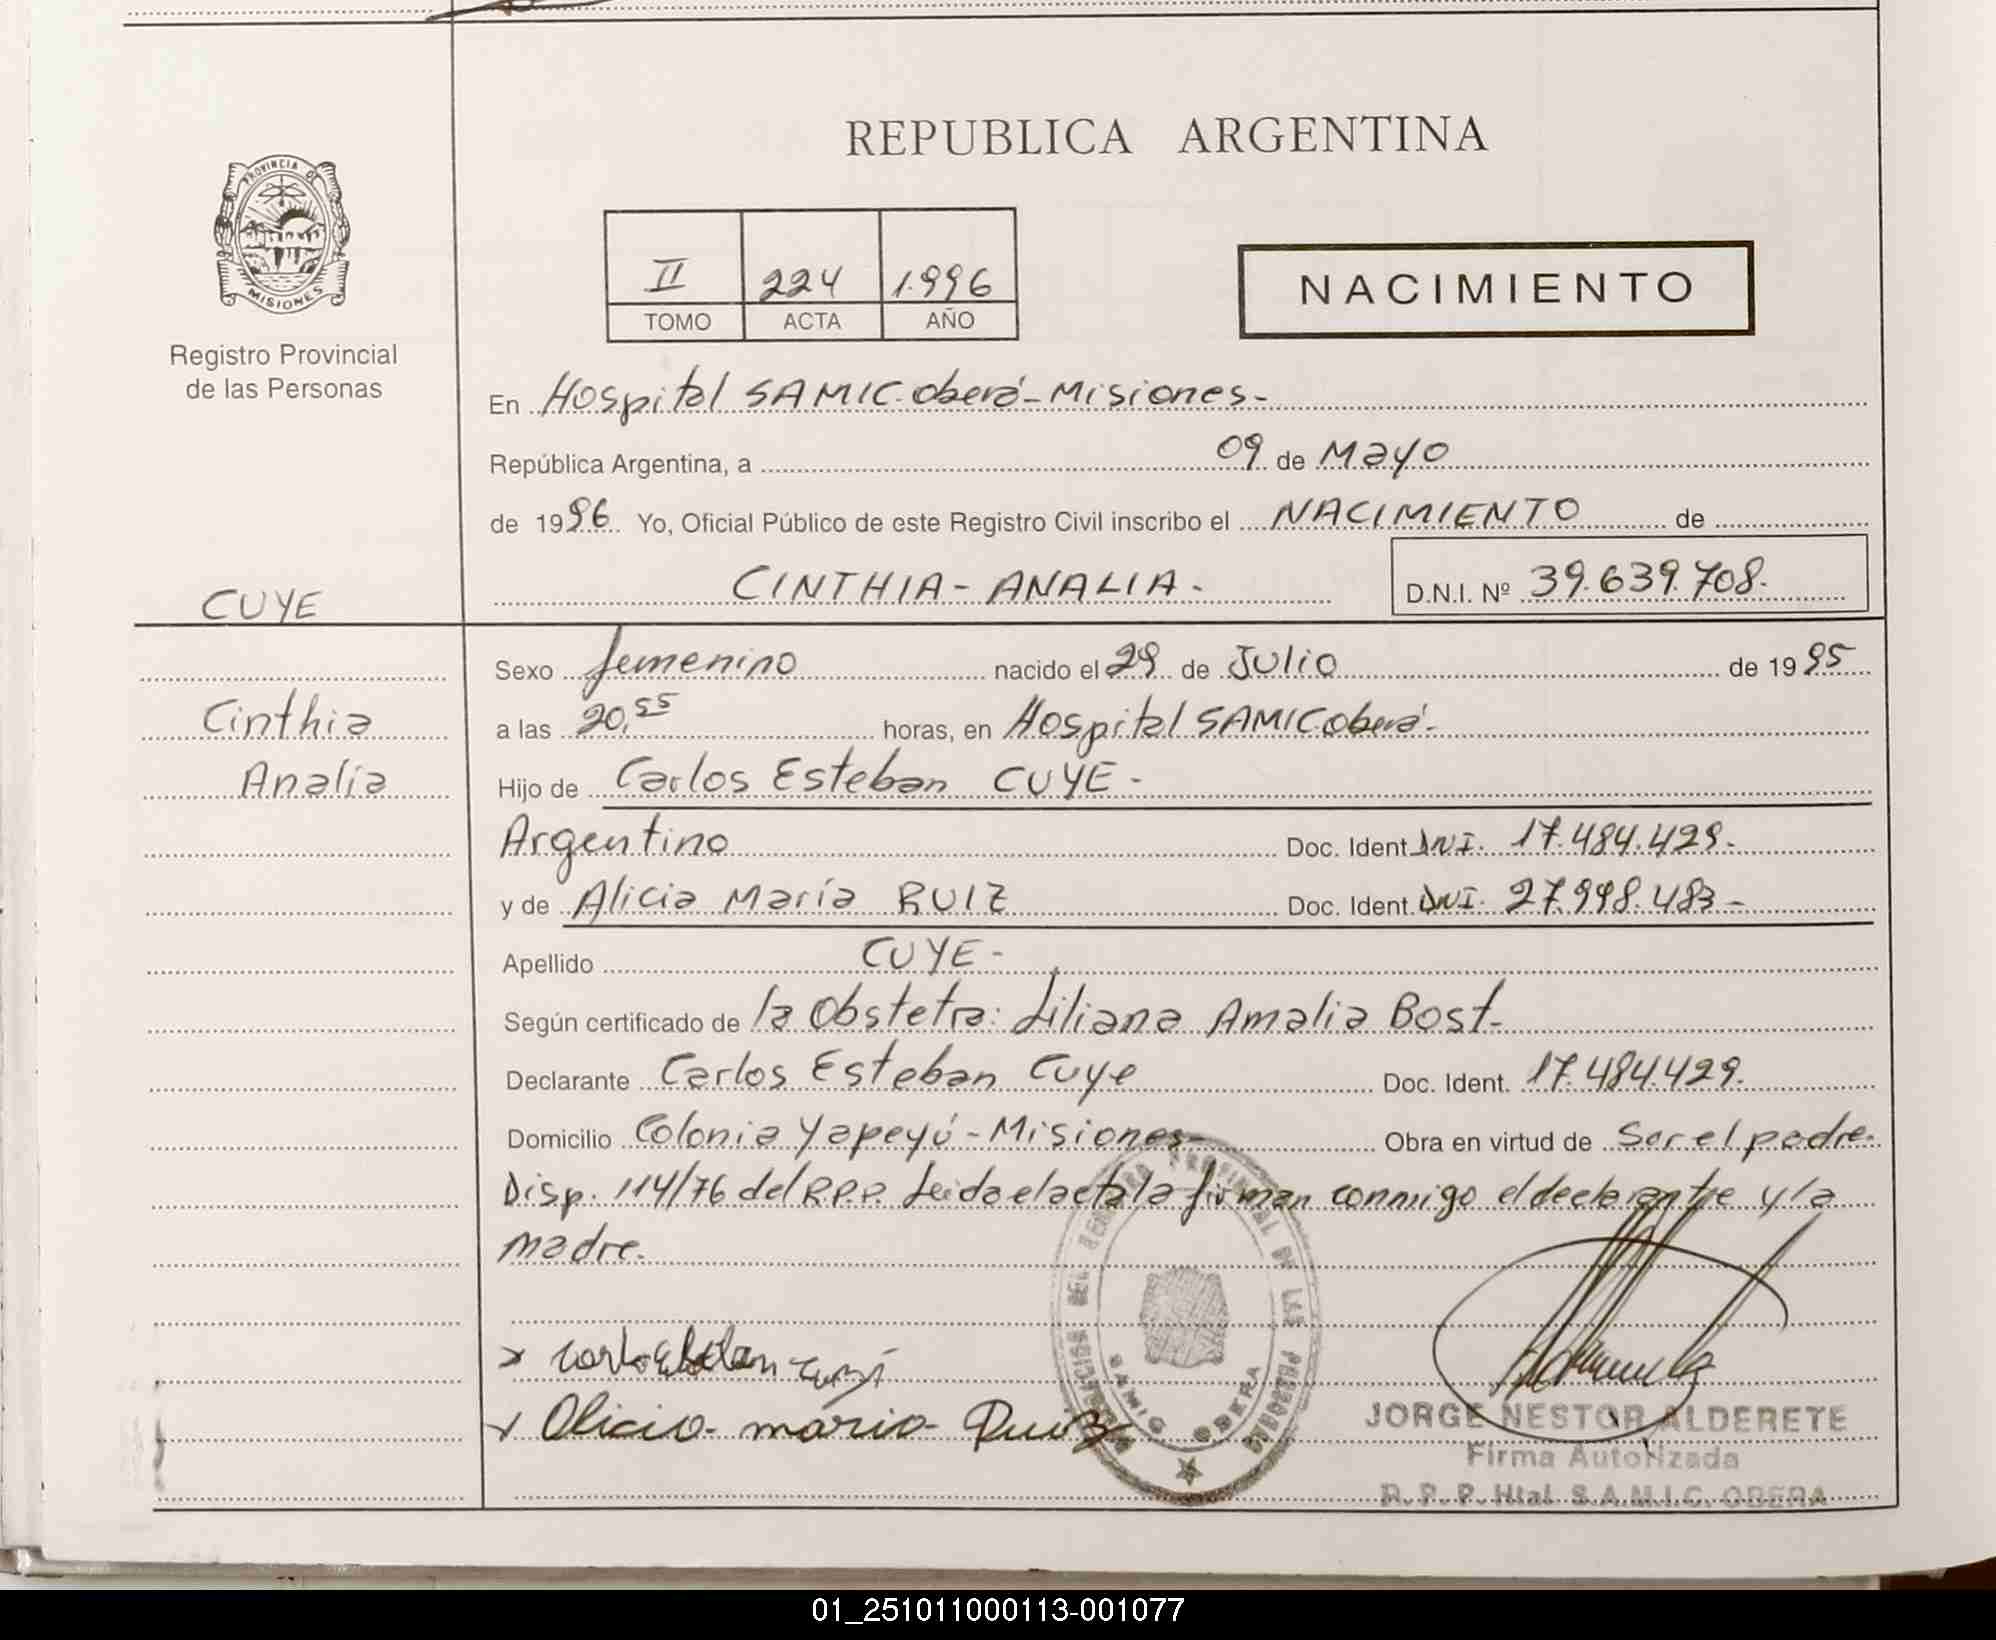 REPUBLICA ARGENTINA
PROVINCIA DE
MISIONES
Registro Provincial
de las Personas
II 224 1.996
TOMO ACTA AÑO
NACIMIENTO
En Hospital SAMIC. Oberá - Misiones -
República Argentina, a 09 de Mayo
de 1996 Yo, Oficial Público de este Registro Civil inscribo el NACIMIENTO de
CINTHIA - ANALIA - D.N.I. Nº 39.639.708.
CUYE
Cinthia
Analía
Sexo femenino nacido el 29 de Julio de 1995
a las 20,55 horas, en Hospital SAMIC Oberá -
Hijo de Carlos Esteban CUYE -
Argentino Doc. Ident DNI. 17.484.429.-
y de Alicia María RUIZ Doc. Ident. DNI. 27.998.483 -
Apellido CUYE -
Según certificado de la Obstetra: Liliana Amalia Bost -
Declarante Carlos Esteban Cuye Doc. Ident. 17.484.429.
Domicilio Colonia Yapeyú - Misiones - Obra en virtud de Ser el padre.
Disp. 114/76 del R.P.P. Leida el acta la firman conmigo el declarante y la
madre.
Olicio - mario - Ruiz
SAMIC OBERA
JORGE NESTOR ALDERETE
Firma Autorizada
R. P. P. Htal. S.A.M.I.C. OBERA
01_251011000113-001077